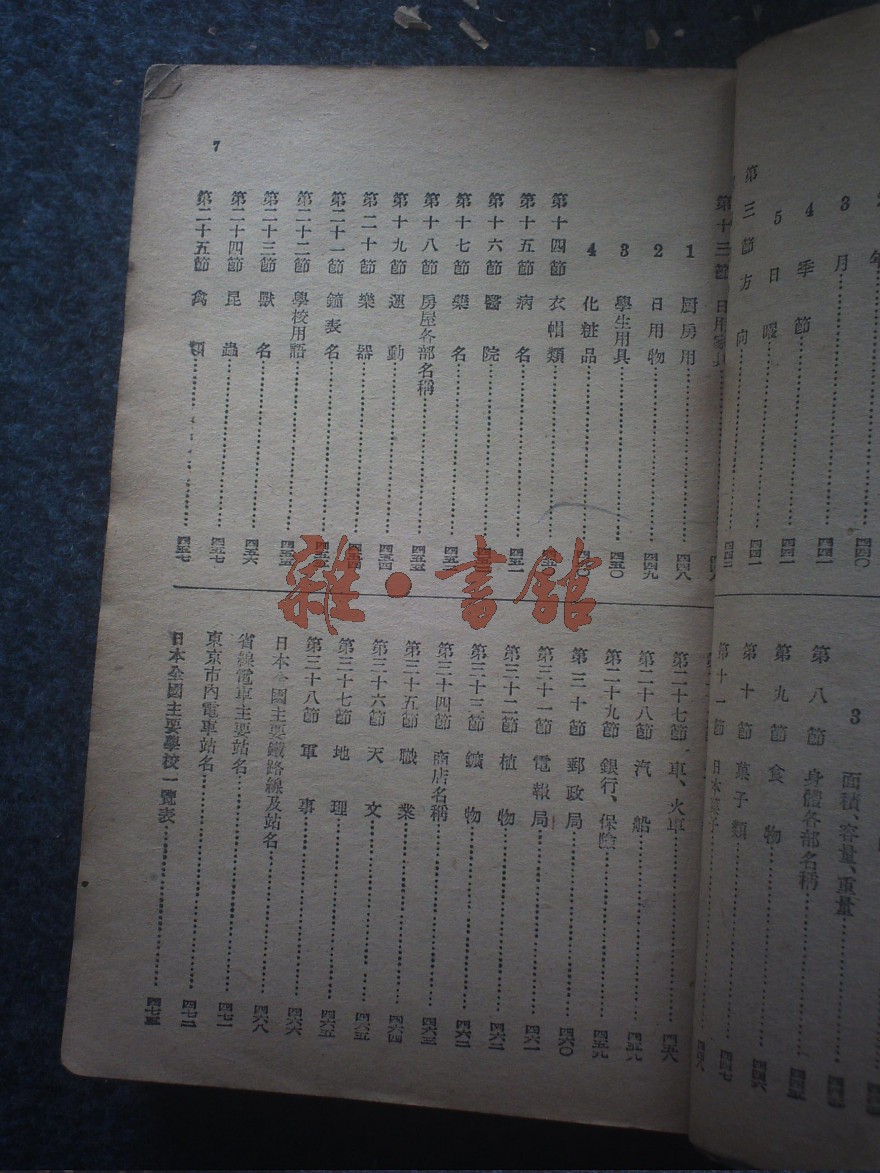 年
3 月……四四一
4 季節……四四一
5 日曜……四四一
第三節 方向……四四二
第十三節 日用家具
1 廚房用……四四八
2 日用物……四四九
3 學生用具……四五〇
4 化粧品
第十四節 衣帽類
第十五節 病名……四五一
第十六節 醫院
第十七節 藥名
第十八節 房屋各部名稱
第十九節 運動……四五四
第二十節 樂器
第二十一節 鐘表名
第二十二節 學校用語
第二十三節 獸名……四五六
第二十四節 昆蟲……四五七
第二十五節 禽類……四五七
7
3 面積、容量、重量
第八節 身體各部名稱
第九節 食物……四四六
第十節 菓子類……四四七
第十一節 日本菓子……四四八
第二十七節 車、火車……四五八
第二十八節 汽船……四五九
第二十九節 銀行、保險……四五九
第三十節 郵政局……四六〇
第三十一節 電報局……四六一
第三十二節 植物……四六二
第三十三節 鑛物……四六二
第三十四節 商店名稱……四六三
第三十五節 職業……四六四
第三十六節 天文……四六五
第三十七節 地理……四六五
第三十八節 軍事……四六六
日本全國主要鐵路線及站名……四六八
省線電車主要站名……四七一
東京市內電車站名……四七二
日本全國主要學校一覽表……四七三
雜·書館